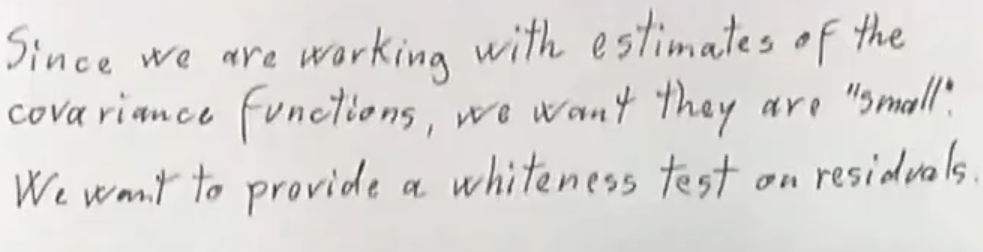 Since we are working with estimates of the
covariance functions, we want they are "small".
We want to provide a whiteness test on residuals.